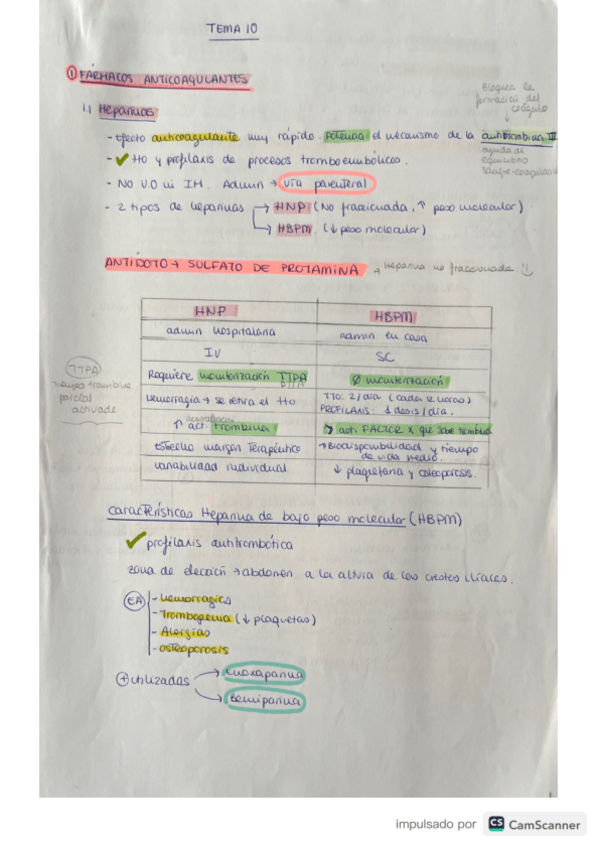 TEMA 10
① FÁRMACOS ANTICOAGULANTES
Bloquea la
formación del
coágulo
1.1 Heparinas
- Efecto anticoagulante muy rápido. Potencia el mecanismo de la antitrombina III
ayuda al
equilibrio
sangre-coagulació
- ✓ tto y profilaxis de procesos tromboembólicos.
- NO V.O ni IM. Admin → vía parenteral
- 2 tipos de heparinas → HNP (No fraccionada, ↑ peso molecular)
→ HBPM (↓ peso molecular)
ANTÍDOTO → SULFATO DE PROTAMINA → Heparina no fraccionada
HNP HBPM
admin hospitalaria admin en casa
IV SC
Requiere monitorización TTPA Ø monitorización
TTPA
tiempo trombina
parcial
activada
hemorragia → se retira el tto TTO: 2/día (cada 12 horas)
PROFILAXIS: 1 dosis/día.
↑ act. trombina act. FACTOR X que sobre trombina
Estrecho margen Terapéutico ↑ Biodisponibilidad y tiempo
de vida medio.
variabilidad individual ↓ plaquetaria y osteoporosis.
Características Heparina de bajo peso molecular (HBPM)
✓ profilaxis antitrombótica
zona de elección → abdomen a la altura de las crestas ilíacas.
EA - Hemorragias
- Trombogenia (↓ plaquetas)
- Alergias
- osteoporosis
⊕ utilizadas → enoxaparina
→ bemiparina
impulsado por CS CamScanner